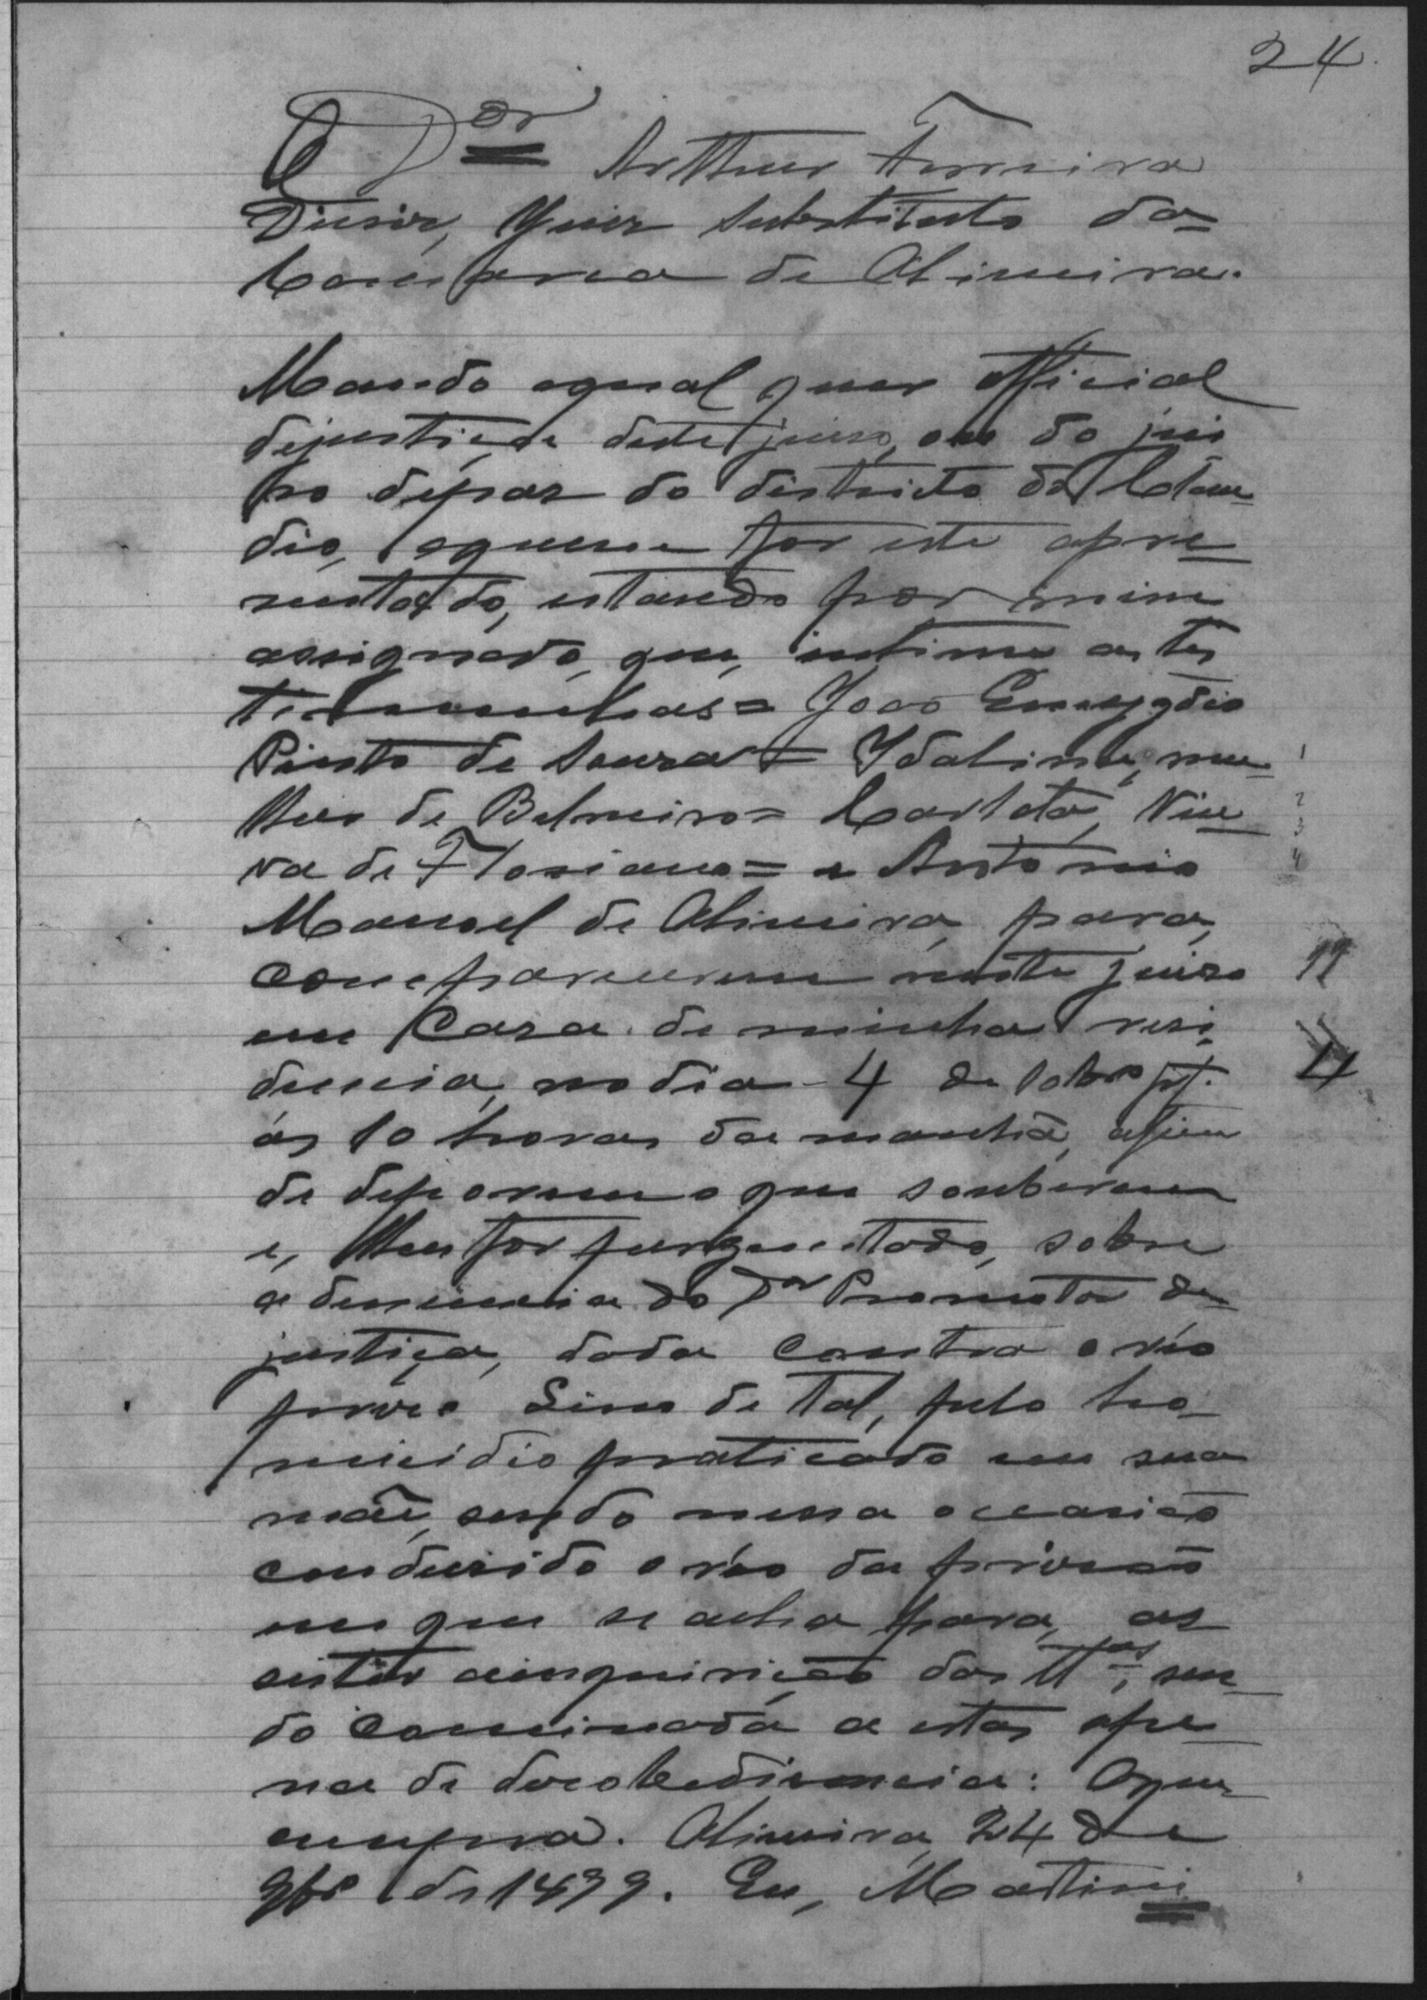 24
O Dor Arthur Ferreira
Diniz, Juiz Substituto da
Comarca de Oliveira.
Mando aqual quer official
dejustiça deste juizo, ou do jui
so depaz do districto do Claudio,
dio, aquem for este apre
sentado, estando por mim
assignado, que, intime as tes
timunhas = João Emygdio
Pinto de Souza = Idalina, mu
lher de Belmiro = Carlota, Viu
va de Floriano = e Antonio
Manoel de Oliveira, para,
comparecerem neste juizo
em Casa de minha resi
dencia, no dia 4 de 10bro pf.
ás 10 horas da manhã, afim
de deporem o que souberem
e, lhes for perguntado, sobre
a denuncia do Dr Promotor de
justiça, dada contra o réo
prezo Lino de Tal, pelo ho
micidio praticado em sua
mãe, sendo nessa occasião
conduzido o réo da prizão
em que se acha para, as
sistir ainquirição das ttas, sen
do cominada a estas ape
na de desobediencia: Oque
cumpra. Oliveira, 24 de
9bro de 1899. Eu, Martini
1
2
3
4
11
4